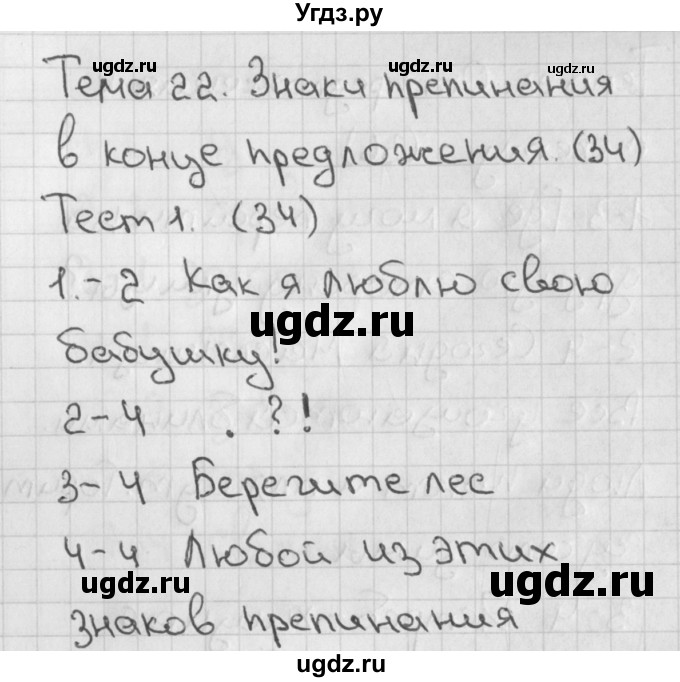 Угдз.ру
ugdz.ru ugdz.ru ugdz.ru
Тема 22. Знаки препинания
в конце предложения. (34)
ugdz.ru ugdz.ru
Тест 1. (34)
1.-2 Как я люблю свою
ugdz.ru
бабушку!
2-4 . ? !
3-4 Берегите лес
4-4 Любой из этих
ugdz.ru ugdz.ru
знаков препинания
ugdz.ru